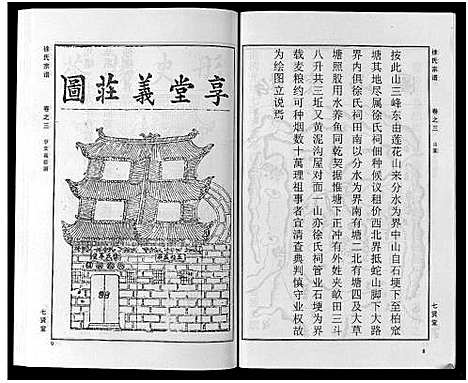 徐氏宗谱
卷之三
山图
七贤堂
8
按此山三峰东由莲花山来分水为界中山自石埂下至柏窊
塘其地尽属徐氏祠佃种候议租价西北界抵蛇山脚下大路
界内俱徐氏祠田南以分水为界南有塘二北有塘四及大草
塘照股用水养鱼同乾契据惟塘下正冲有外姓夹畝田三斗
八升共三坵又黄泥沟屋对面一山亦徐氏祠管业石埂为界
载麦粮约可种烟数十萬理祖事者宜清查典判慎守业权故
为绘图立说焉
徐氏宗谱
卷之三
享堂義莊圖
七贤堂
9
享堂義莊圖